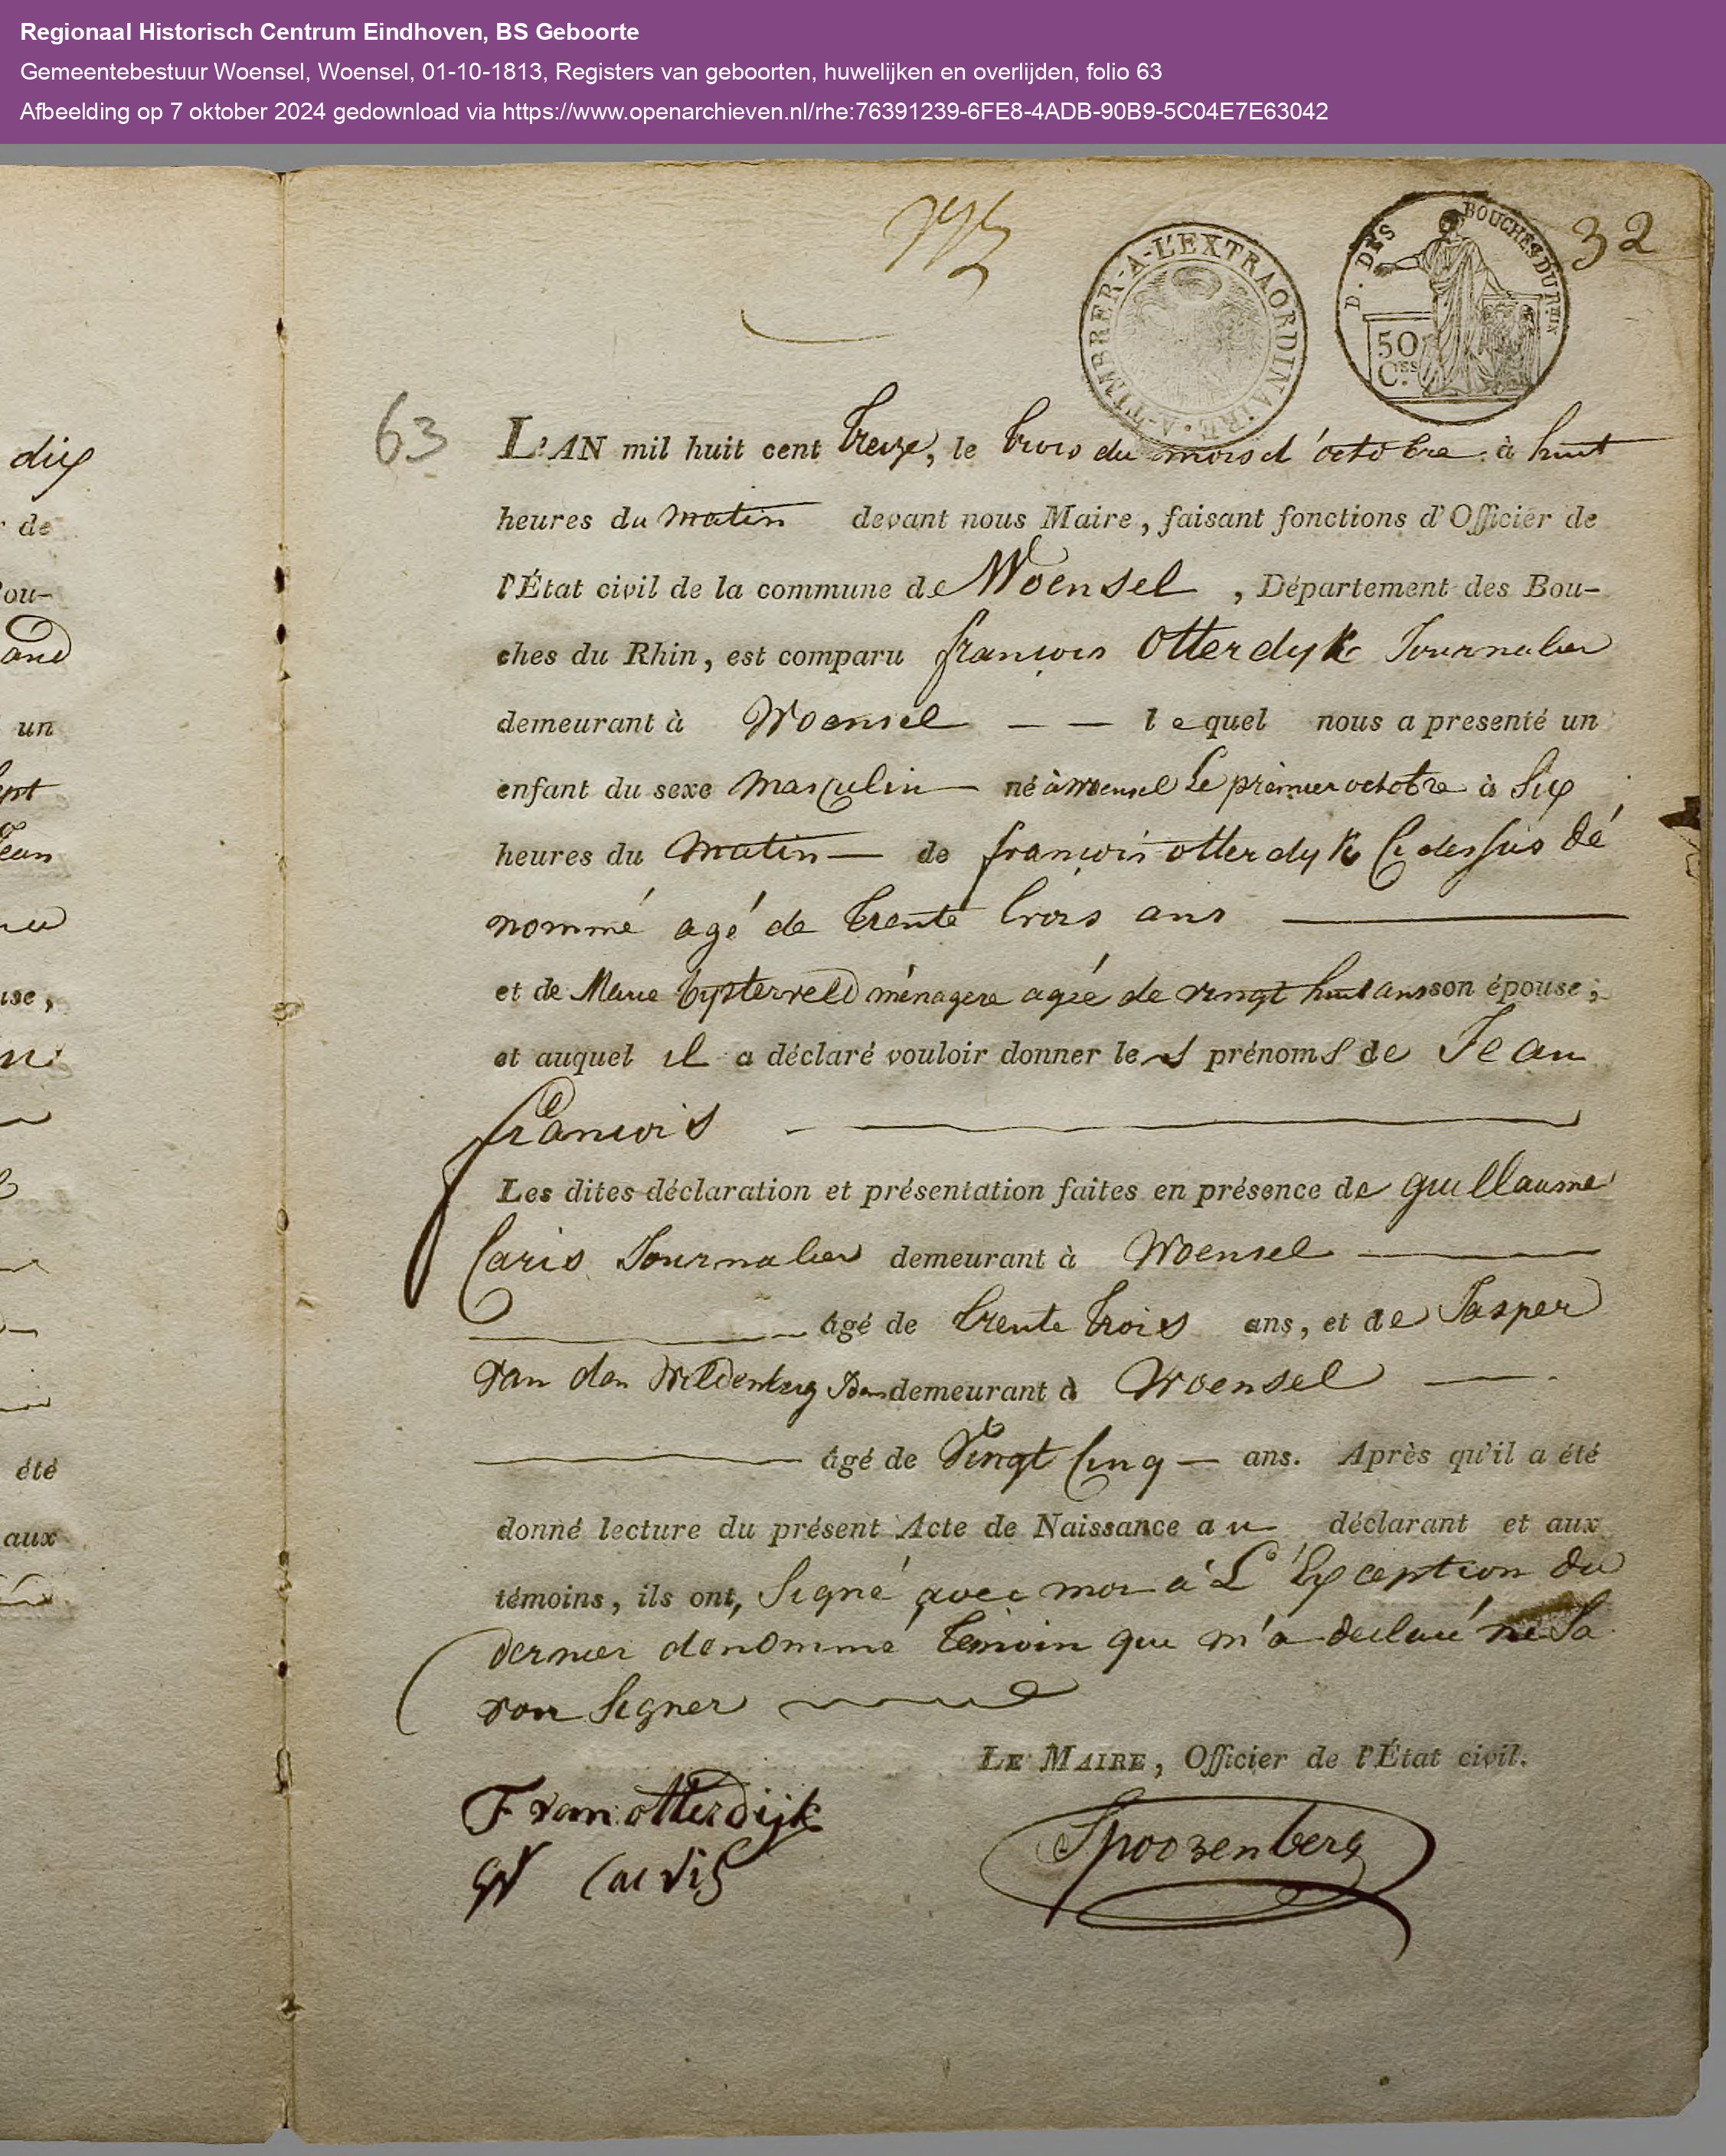 Regionaal Historisch Centrum Eindhoven, BS Geboorte
Gemeentebestuur Woensel, Woensel, 01-10-1813, Registers van geboorten, huwelijken en overlijden, folio 63
Afbeelding op 7 oktober 2024 gedownload via https://www.openarchieven.nl/rhe:76391239-6FE8-4ADB-90B9-5C04E7E63042
dix
de
ou-
un
ept
Jean
use,
été
aux
A-TIMBRER-A-L'EXTRAORDINAIRE
D. DES BOUCHES DU RHIN
50
C.ES
32
63
L'AN mil huit cent treize, le trois du mois d'octobre à huit
heures du matin devant nous Maire, faisant fonctions d'Officier de
l'État civil de la commune de Woensel, Département des Bou-
ches du Rhin, est comparu françois Otterdyk Journalier
demeurant à Woensel — — lequel nous a presenté un
enfant du sexe masculin — né à Woensel Le premier octobre à Six
heures du matin — de françois otterdyk Ci dessus dé
nommé agé de trente trois ans
et de Marie bysterveld ménagere agée de vingt huit ans son épouse;
et auquel il a déclaré vouloir donner les prénoms de Jean
francois
Les dites déclaration et présentation faites en présence de guillaume
Caris Journalier demeurant à Woensel
âgé de trente trois ans, et de Jasper
Van den Wildenberg demeurant à Woensel —
âgé de Vingt Cinq — ans. Après qu'il a été
donné lecture du présent Acte de Naissance au déclarant et aux
témoins, ils ont, Signé avec moi à L'Exception du
dernier denommé temoin qui m'a declaré ne Sa
voir Signer
LE MAIRE, Officier de l'État civil.
F van otterdijk
Spoorenberg